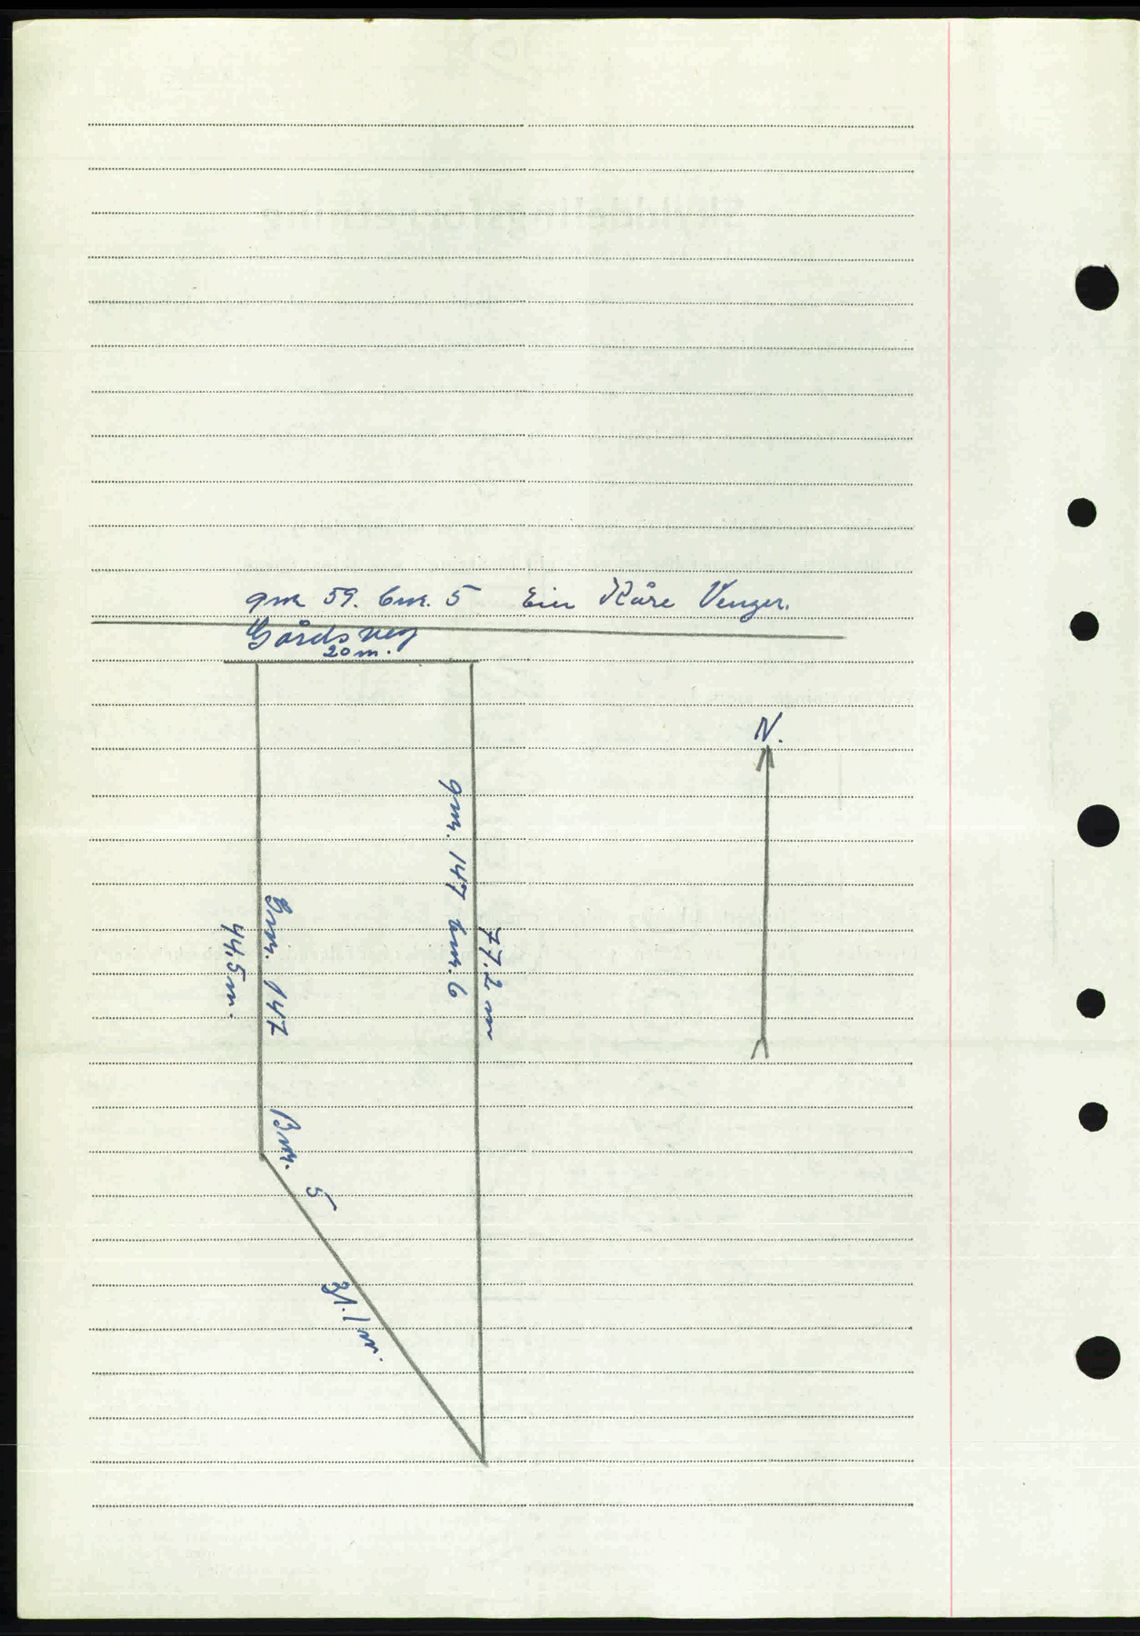 gnr 59. bnr. 5 Eier Kåre Venger.
Gårdsveg
20 m.
N.
gnr. 147 bnr. 6
77.2 m
Gnr. 147
44,5 m.
Bnr. 5
31.1 m.